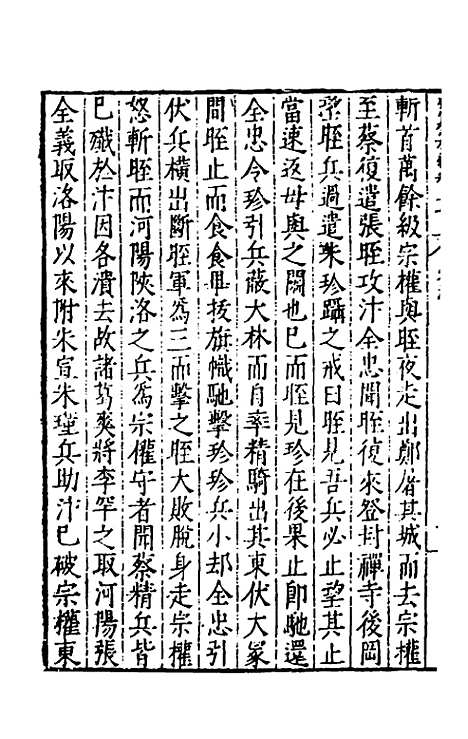 斬首萬餘級宗權與晊夜走出鄭屠其城而去宗權
至蔡復遣張晊攻汴全忠聞晊復來登封禪寺後岡
望晊兵過遣朱珍躡之戒曰晊見吾兵必止望其止
當速返毋與之鬬也已而晊見珍在後果止即馳還
全忠令珍引兵蔽大林而自率精騎出其東伏大冢
間晊止而食食畢拔旗幟馳擊珍珍兵小却全忠引
伏兵橫出斷晊軍為三而擊之晊大敗脫身走宗權
怒斬晊而河陽陝洛之兵為宗權守者聞蔡精兵皆
已殲於汴因各潰去故諸葛爽將李罕之取河陽張
全義取洛陽以來附朱宣朱瑾兵助汴已破宗權東